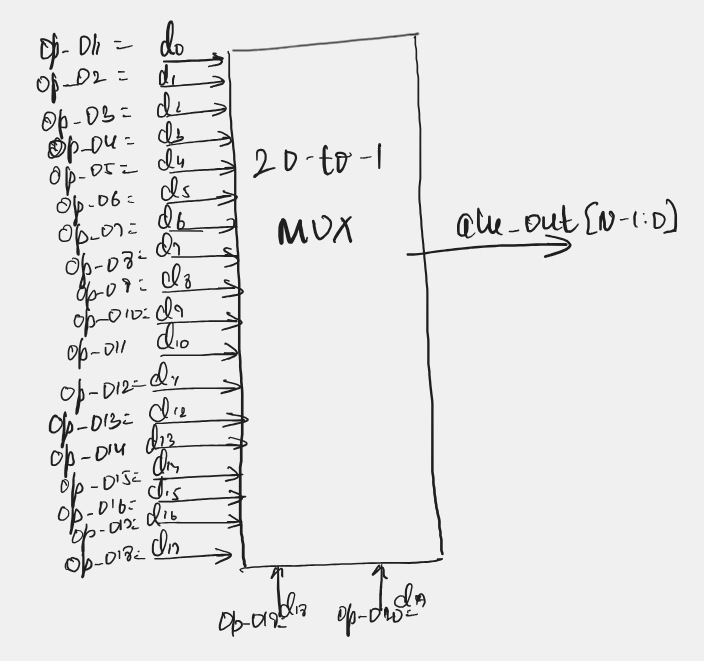 op_D1 = d0
op_D2 = d1
op_D3 = d2
op_D4 = d3
op_D5 = d4
op_D6 = d5
op_D7 = d6
op_D8 = d7
op_D9 = d8
op_D10 = d9
op_D11 d10
op_D12 = d11
op_D13 = d12
op_D14 d13
op_D15 = d14
op_D16 = d15
op_D17 = d16
op_D18 = d17
20-to-1
MUX
alu_out [N-1:0]
op_D19 = d18
op_D20 = d19